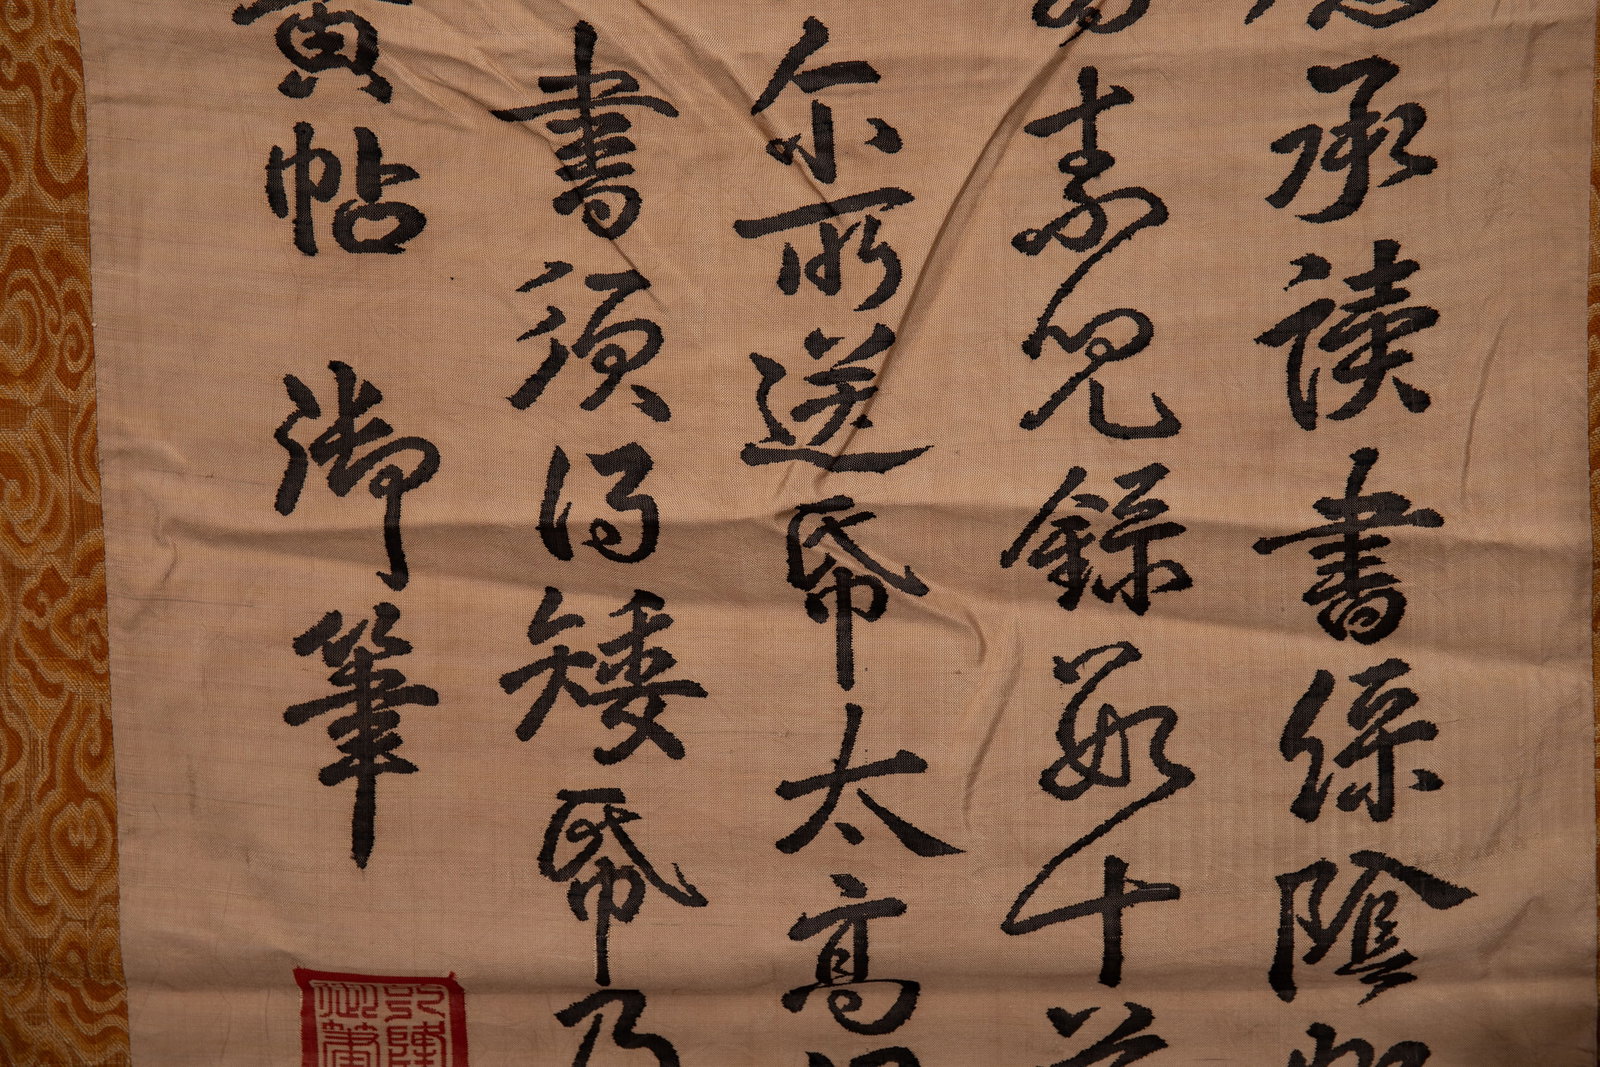 承讀書綠陰
素兒錄數十
尔所送帋太高
書須得矮帋乃
帖 御筆
乾隆
御筆